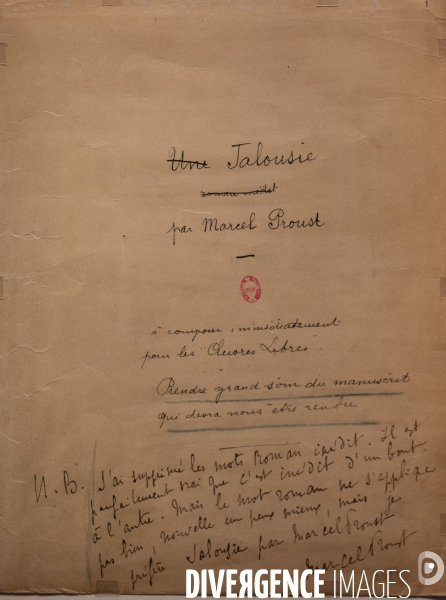 Une Jalousie
roman inédit
par Marcel Proust
à composer immédiatement
pour les "Œuvres Libres".
Prendre grand soin du manuscrit
qui devra nous être rendu
N. B. J'ai supprimé les mots Roman inédit. Il est
parfaitement vrai que c'est inédit d'un bout
à l'autre. Mais le mot roman ne s'applique
pas bien, nouvelle un peu mieux, mais je
préfère Jalousie par Marcel Proust
Marcel Proust
DIVERGENCE IMAGES